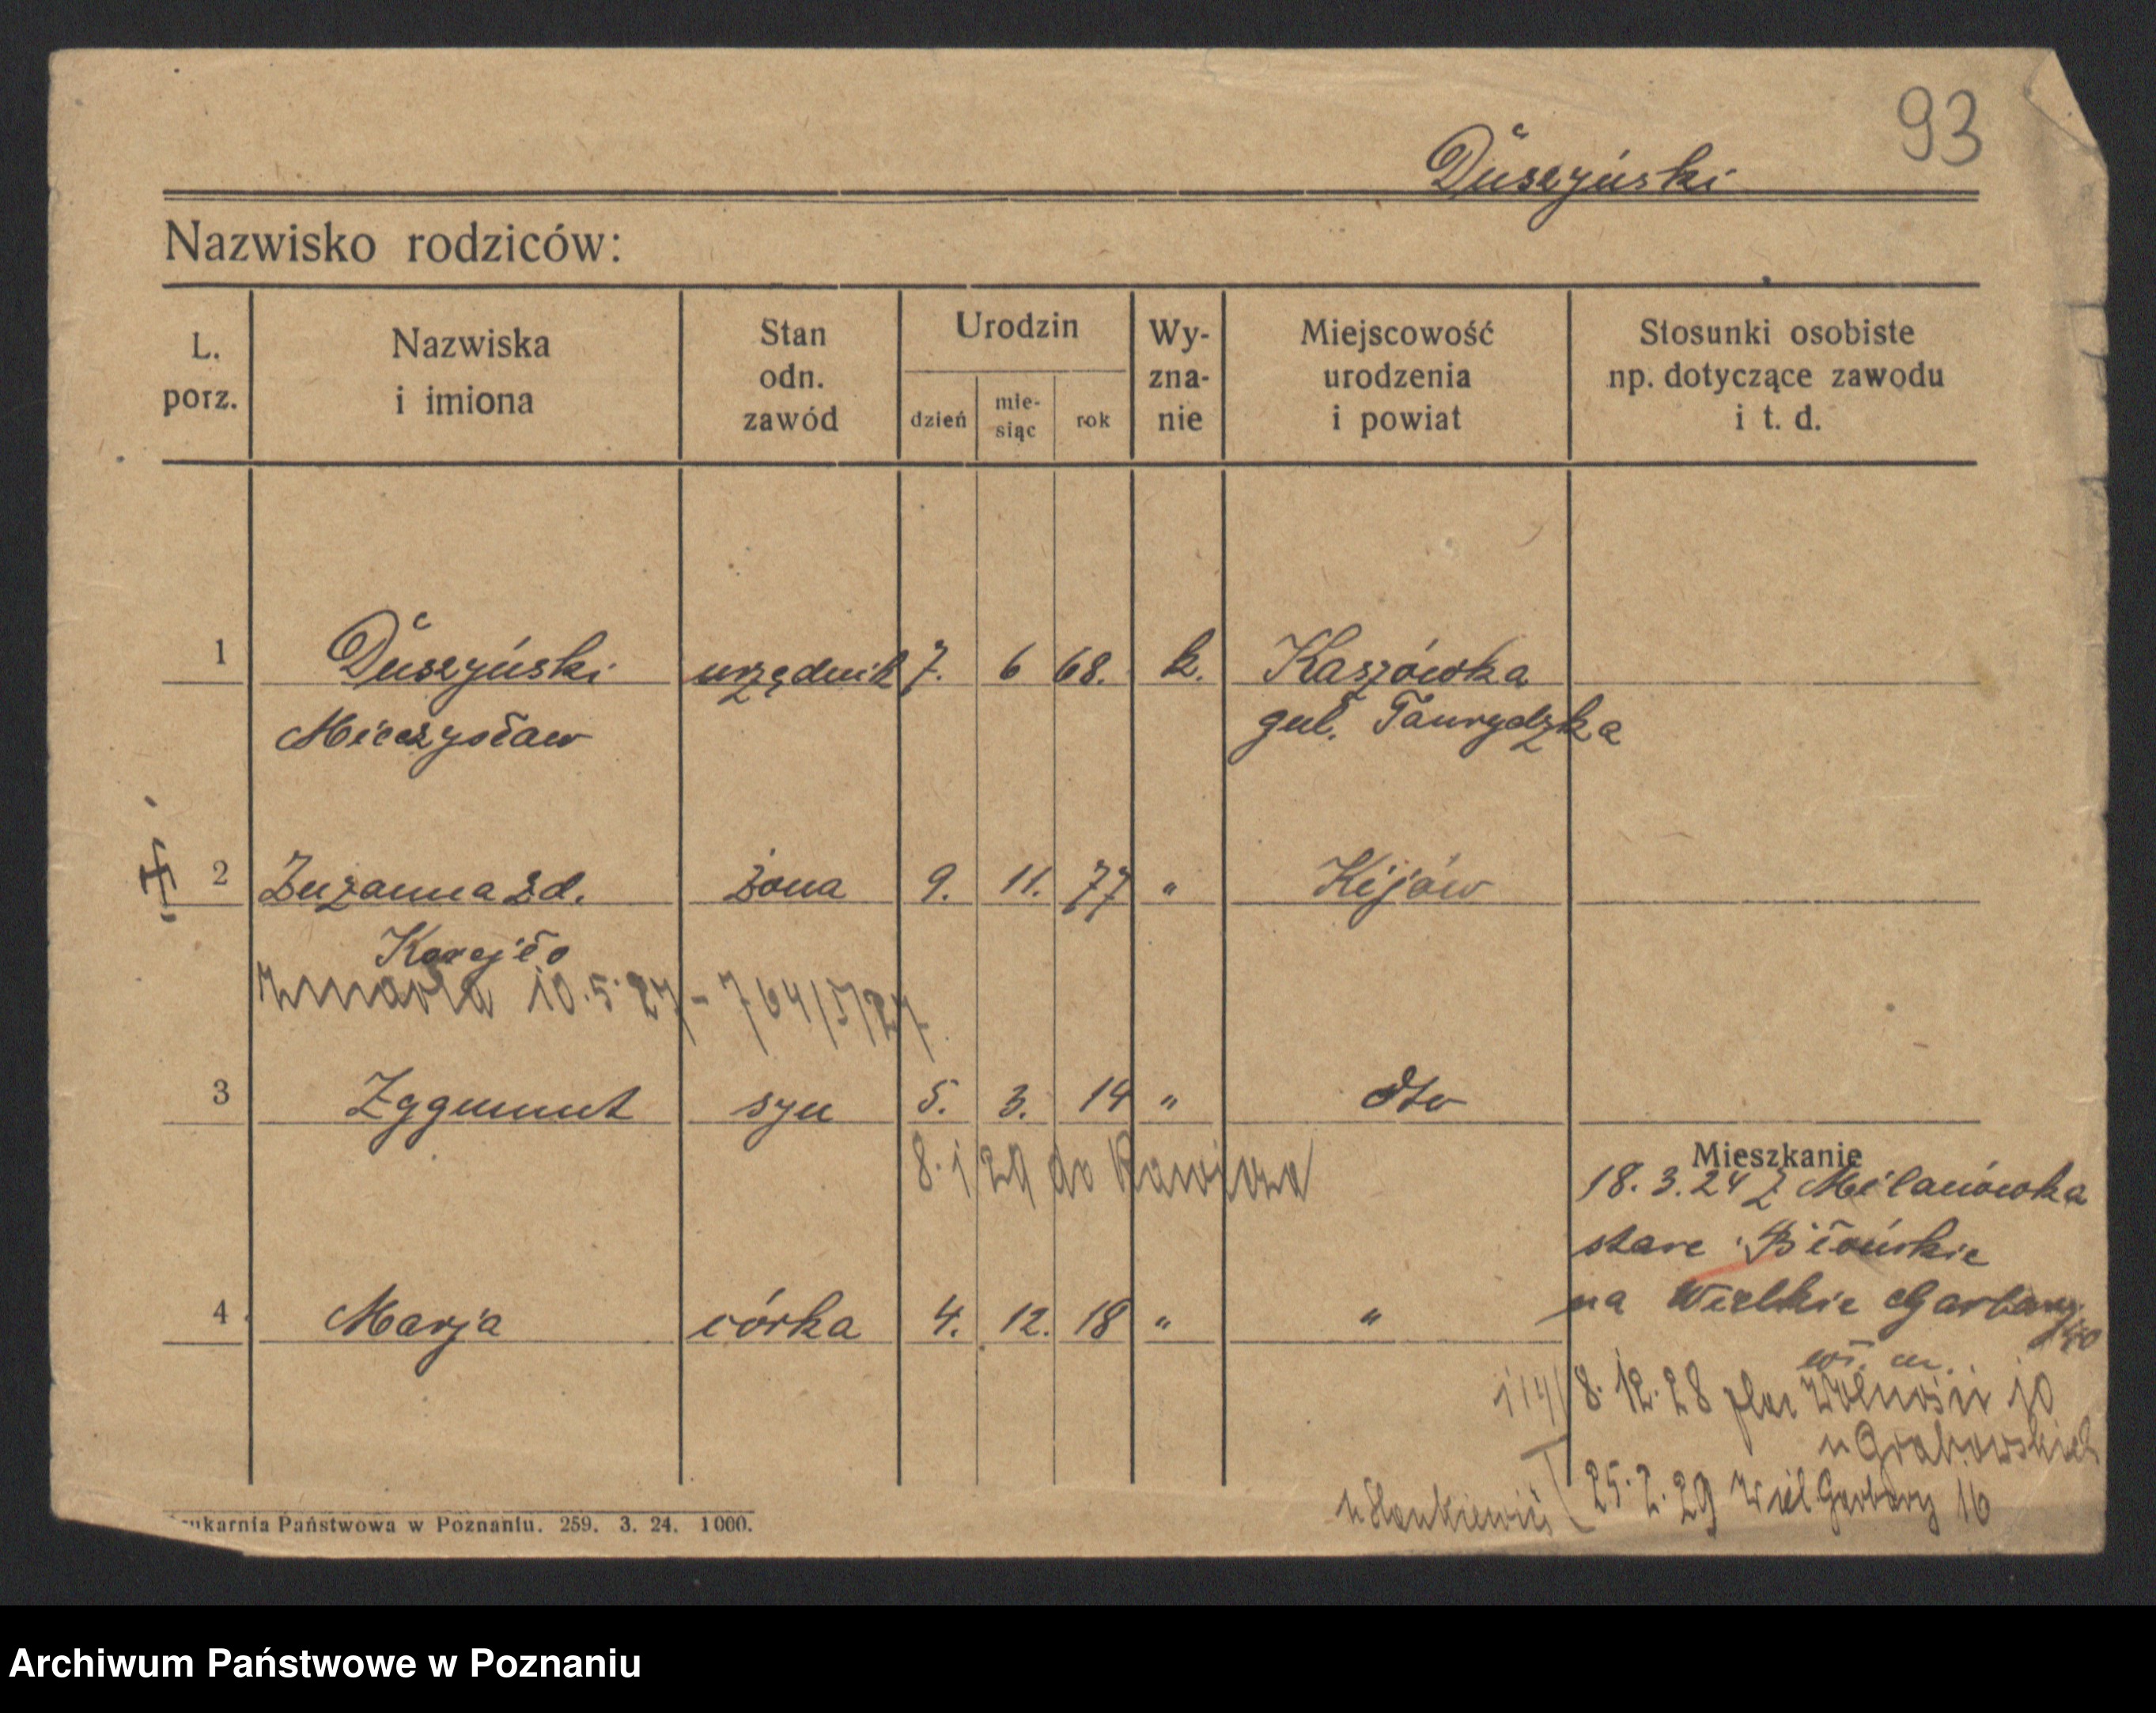 93
Duszyński
Nazwisko rodziców:
L. porz.
Nazwiska i imiona
Stan odn. zawód
Urodzin
dzień mie-siąc rok
Wy-zna-nie
Miejscowość urodzenia i powiat
Stosunki osobiste np. dotyczące zawodu i t. d.
1 Duszyński urzędnik 7. 6 68. k. Kaszówka
Mieczysław gub. Taurydzka
2 Zuzanna zd. żona 9. 11. 77 " Kijów
zmarła 10.5.27 - 764/5/27.
3 Zygmunt syn 5. 3. 14 " dto
8.1 29 do Rawicza
Mieszkanie
18.3.24 z Milanówka
stare Błońskie
4 Marja córka 4. 12. 18 " "
na Wielkie Garbary 40
wł. m.
114/ 8.12.28 plac Wolności 10
u Grabowskich
25.2.29 Wiel Garbary 16
Drukarnia Państwowa w Poznaniu. 259. 3. 24. 1000.
Archiwum Państwowe w Poznaniu